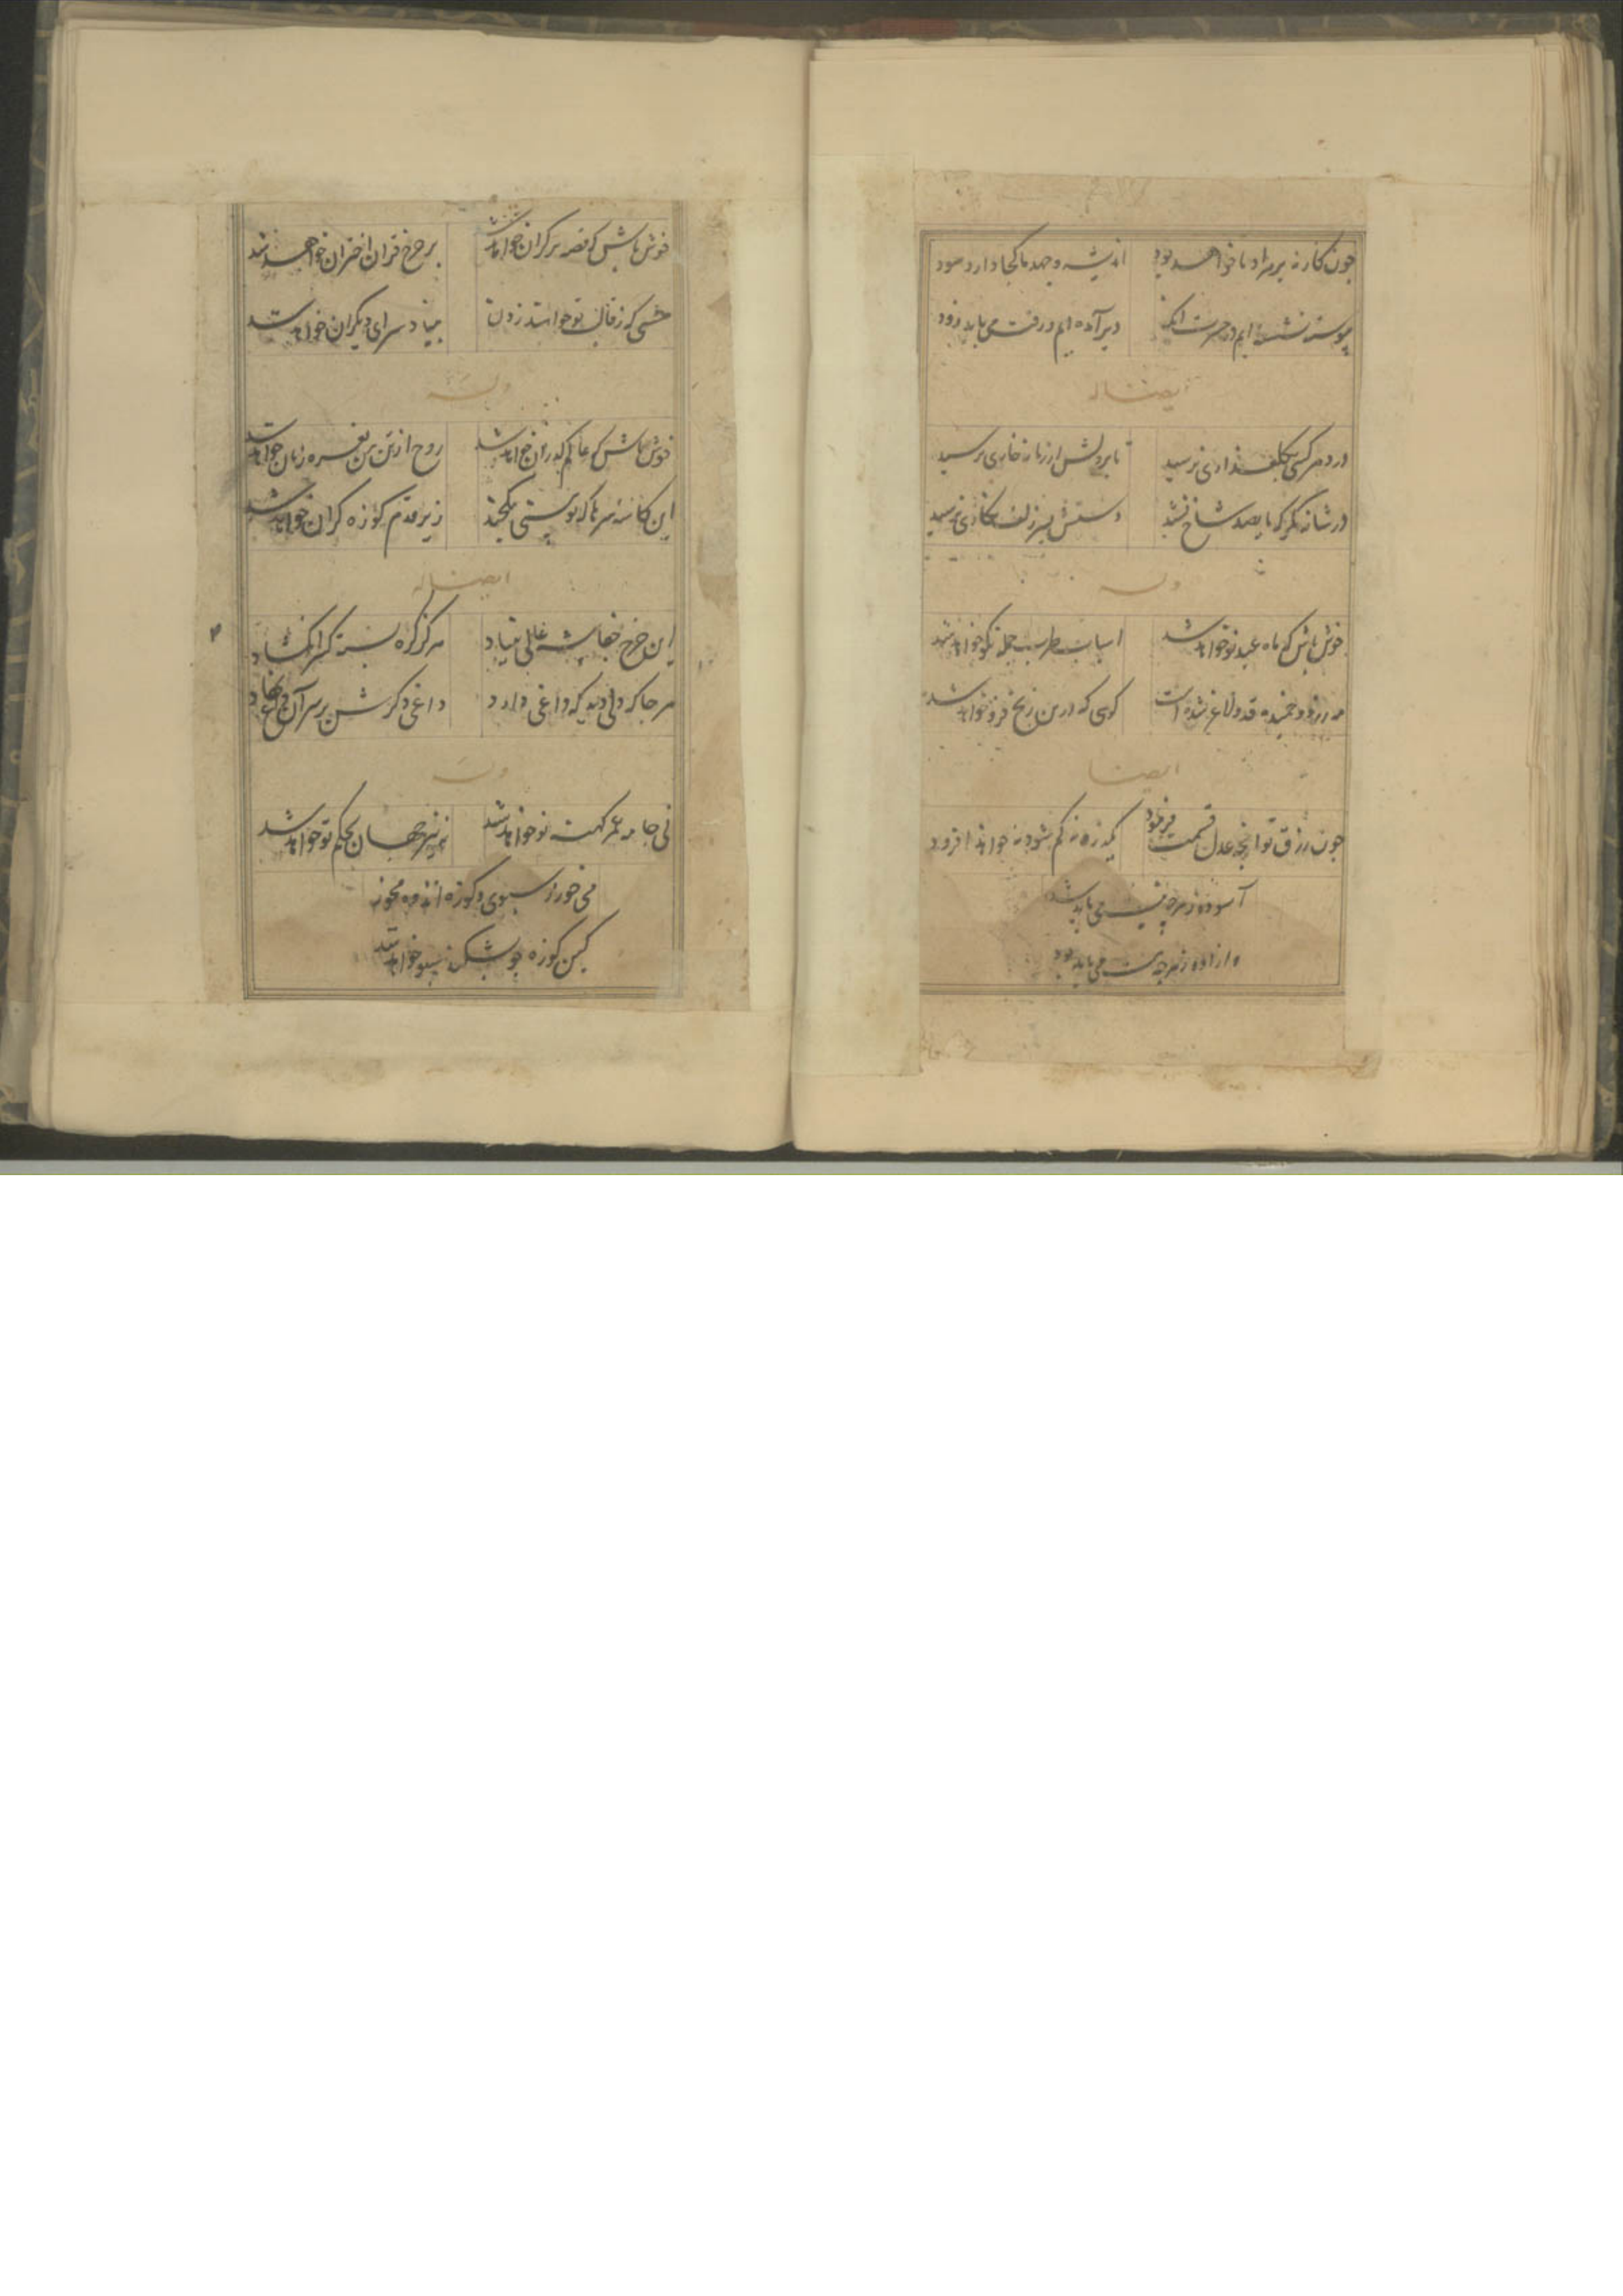 چون کار نه بر مراد ما خواهد بود اندیشه و جهد ما کجا دارد سود
پیوسته نشسته ایم در حسرت آنک دیر آمده ایم و رفت می باید زود
ایضا له
در دهر کسی بگلعذاری نرسید تا بر دلش از زمانه خاری نرسید
در شانه نگر که تا بصد شاخ نشد دستش بسر زلف نگاری نرسید
وله
خوش باش که ماه عید نو خواهد شد اسباب طرب جمله نکو خواهد شد
مه زرد و خمیده قد و لاغر شده است گوی که درین رنج فرو خواهد شد
ایضا
چون رزق تو آنچه عدل قسمت فرمود یک ذره نه کم شود نه خواهد افزود
آسوده ز هر چه نیست می باید شد
و ازاده ز هر چه هست می باید بود
خوش باش که غصه بی کران خواهد شد بر چرخ قران اختران خواهد شد
خشتی که ز قالب تو خواهند زدن بنیاد سرای دیگران خواهد شد
وله
خوش باش که عالم گذران خواهد شد روح از تن نعره زنان خواهد شد
این کاسه سرها که تو بینی زیر قدم کوزه گران خواهد شد
ایضا له
این چرخ جفا پیشه عالی بنیاد هرگز گره بسته کس را نگشاد
هر جا که دلی دید که داغی دارد داغی دگرش بر سر آن داغ نهاد
وله
نی جامه عمر کهنه نو خواهد شد نی نیز جهان بکام تو خواهد شد
می خور ز سبوی و کوزه اندوه مخور
کین کوزه چو بشکند سبو خواهد شد